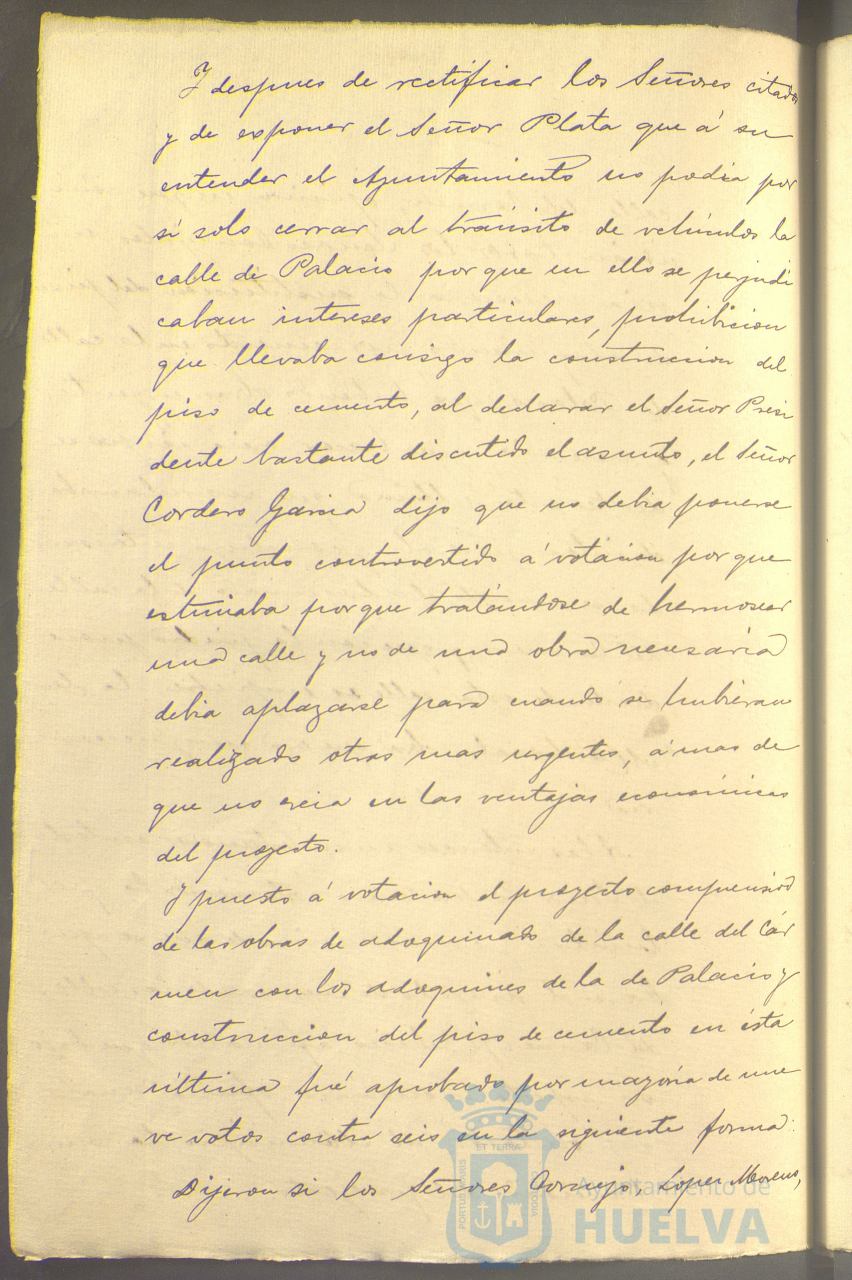 Y despues de rectificar los Señores citados
y de exponer el Señor Plata que á su
entender el Ayuntamiento no podia por
si solo cerrar al tránsito de vehiculos la
calle de Palacio por que en ello se perjudi
caban intereses particulares, prohibicion
que llevaba consigo la construccion del
piso de cemento, al declarar el Señor Presi
dente bastante discutido el asunto, el Señor
Cordero Garcia dijo que no debia ponerse
el punto controvertido á votacion por que
estimaba porque tratándose de hermosear
una calle y no de una obra necesaria
debia aplazarse para cuando se hubieran
realizado otras mas urgentes, á mas de
que no creia en las ventajas económicas
del proyecto.
Y puesto á votacion el proyecto comprensivo
de las obras de adoquinado de la calle del Cár
men con los adoquines de la de Palacio y
construccion del piso de cemento en ésta
última fué aprobado por mayoria de nue
ve votos contra seis en la siguiente forma:
Dijeron si los Señores Cornejo, Lopez Moreno,
ET TERRAE
PORTUS MARIS
CUSTODIA
Ayuntamiento de
HUELVA